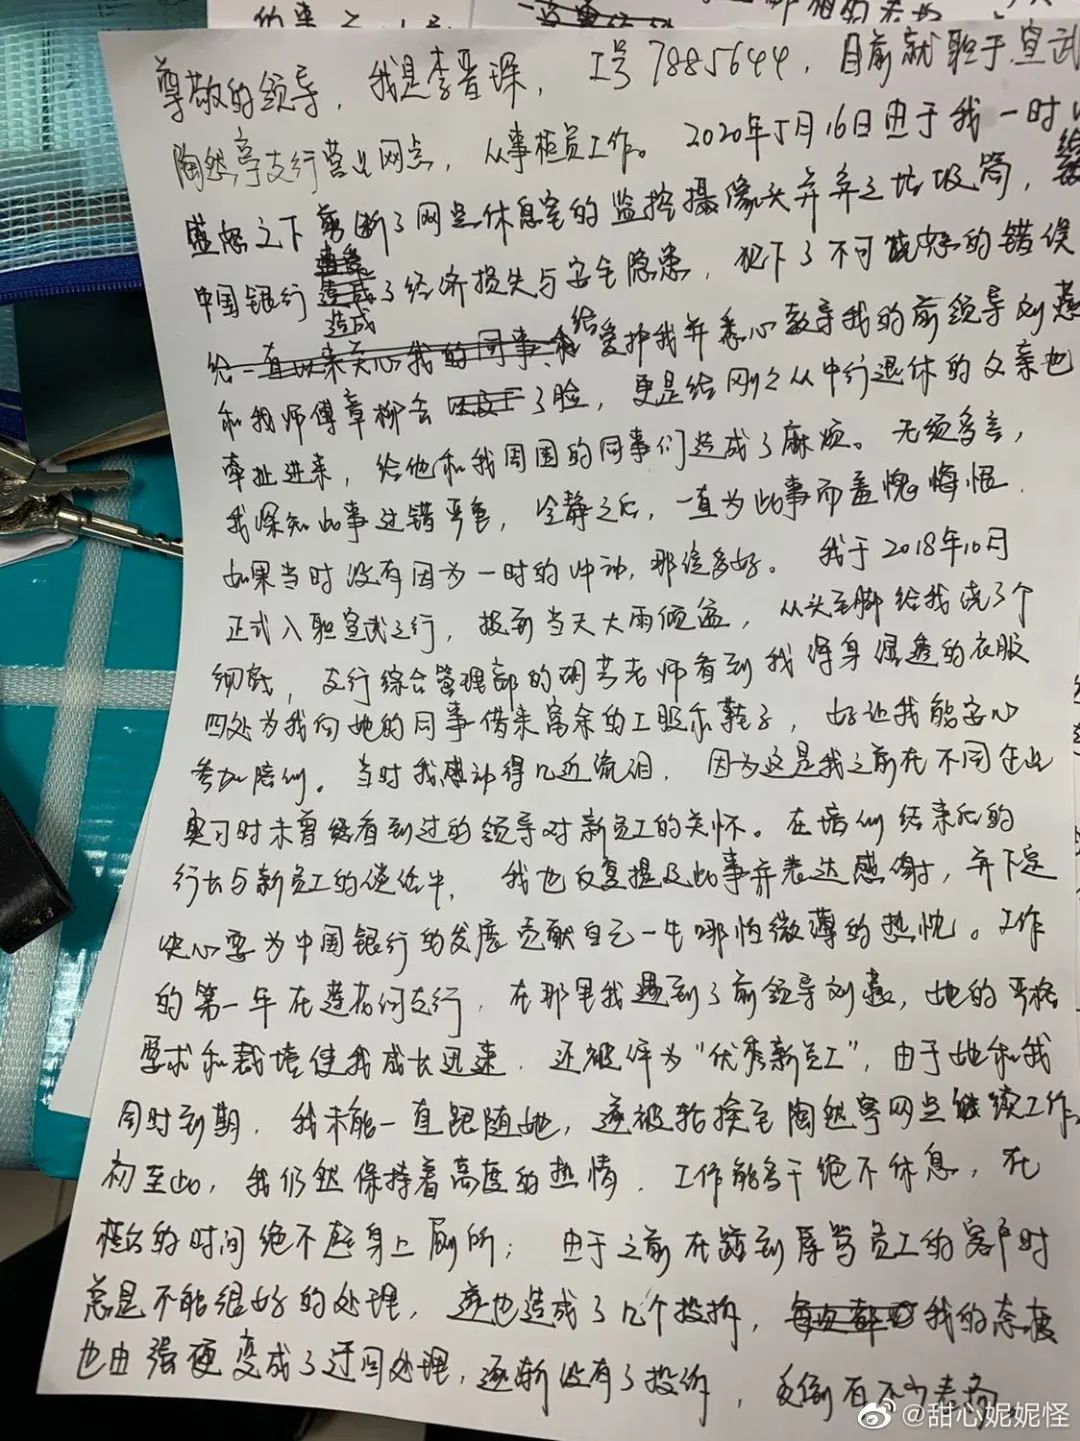 尊敬的领导，我是李晋琛，工号7885644，目前就职于宣武
陶然亭支行营业网点，从事柜员工作。2020年5月16日由于我一时
盛怒之下剪断了网点休息室的监控摄像头并弃之垃圾筒，给
中国银行造成了经济损失与安全隐患，犯下了不可饶恕的错误
造成
给一直以来关心我的同事 给爱护我并悉心教导我的前领导刘燕
和我师傅章柳去 了脸，更是给刚刚从中行退休的父亲也
牵扯进来，给他和我周围的同事们造成了麻烦。无须多言，
我深知此事过错严重，冷静之后，一直为此事而羞愧悔恨.
如果当时没有因为一时的冲动，那该多好。我于2018年10月
正式入职宣武支行，报到当天大雨倾盆，从头至脚给我浇了个
彻底，支行综合管理部的胡芳老师看到我浑身湿透的衣服
四处为我向她的同事借来富余的工服和鞋子，好让我能安心
参加培训。当时我感动得几近流泪，因为这是我之前在不同企业
实习时未曾经看到过的领导对新员工的关怀。在培训结束后的
行长与新员工的谈话中，我也反复提及此事并表达感谢，并下定
决心要为中国银行的发展贡献自己一生哪怕微薄的热忱。工作
的第一年在莲花河支行，在那里我遇到了前领导刘燕，她的严格
要求和栽培使我成长迅速，还被评为“优秀新员工”，由于她和我
同时到期，我未能一直跟随她，遂被轮换至陶然亭网点继续工作。
初至此，我仍然保持着高度的热情，工作能多干绝不休息，在
柜台的时间绝不起身上厕所；由于之前在踫到辱骂员工的客户时
总是不能很好的处理，遂也造成了几个投拆，我的态度
也由强硬变成了迂回处理，逐渐没有了投诉，反倒有不少表扬。
@甜心妮妮怪